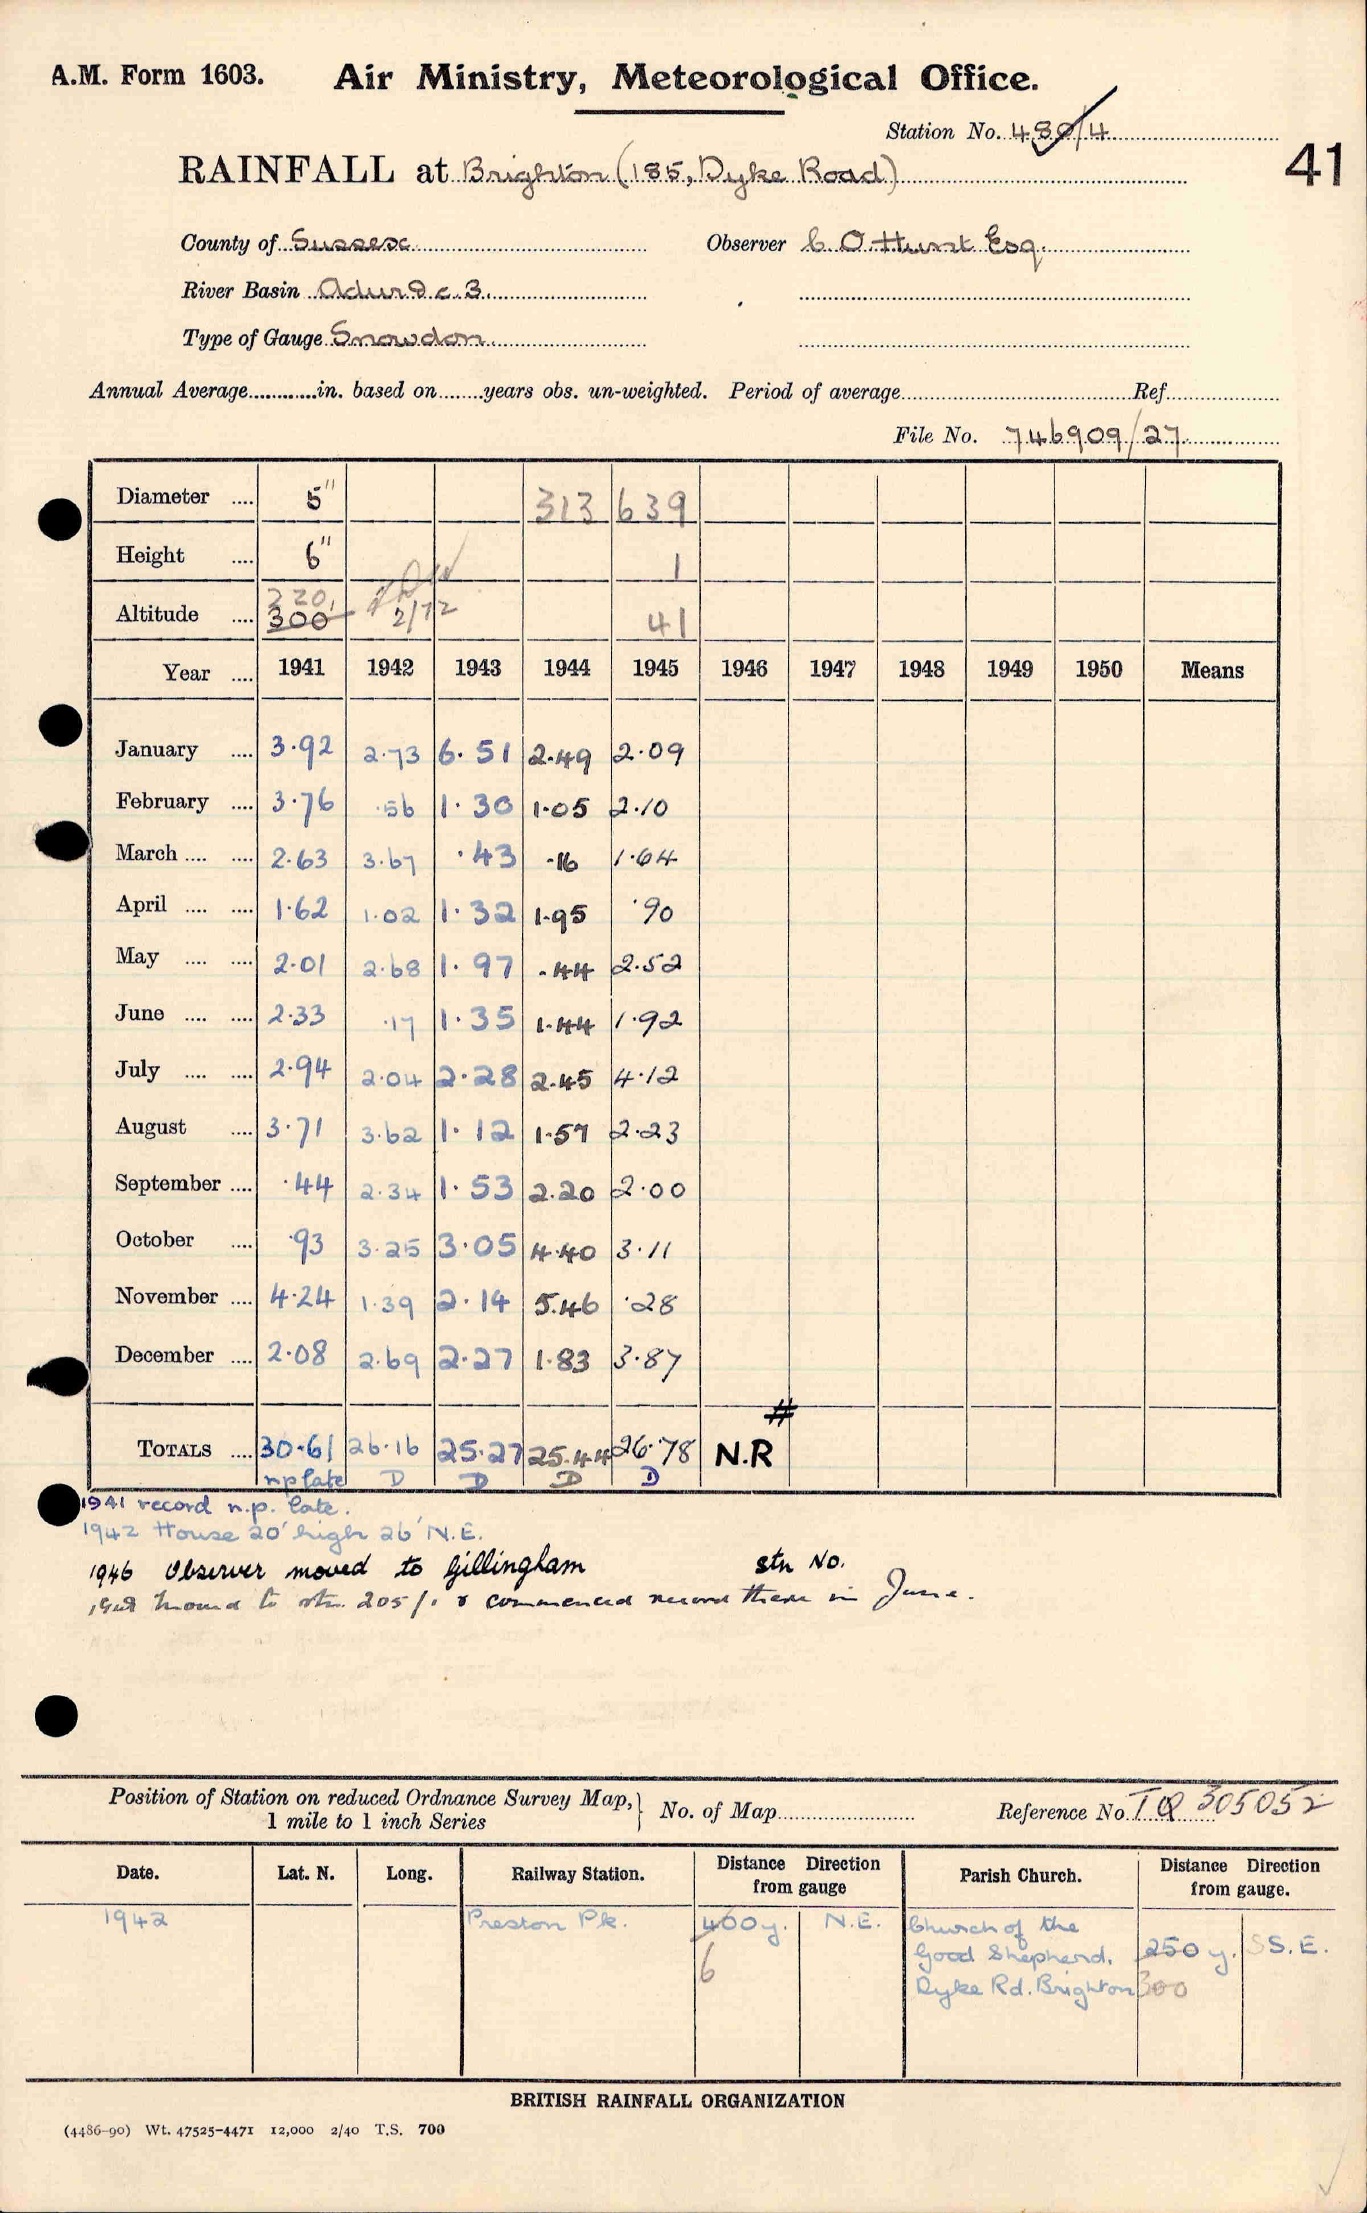 A.M. Form 1603. Air Ministry, Meteorological Office.
Station No. 480/4
41
RAINFALL at Brighton (185, Dyke Road)
County of Sussex Observer C O Hunt Esq.
River Basin Adur D c.3.
Type of Gauge Snowdon
Annual Average............in. based on........years obs. un-weighted. Period of average............Ref............
File No. 746909/27
Diameter .... 5" 313 639
Height .... 6" 1
Altitude .... 220 300 2/72 41
Year .... 1941 1942 1943 1944 1945 1946 1947 1948 1949 1950 Means
January .... 3.92 2.73 6.51 2.49 2.09
February .... 3.76 .56 1.30 1.05 2.10
March .... .... 2.63 3.67 .43 .16 1.64
April .... .... 1.62 1.02 1.32 1.95 .90
May .... .... 2.01 2.68 1.97 .44 2.52
June .... .... 2.33 .17 1.35 1.44 1.92
July .... .... 2.94 2.04 2.28 2.45 4.12
August .... 3.71 3.62 1.12 1.57 2.23
September .... .44 2.34 1.53 2.20 2.00
October .... .93 3.25 3.05 4.40 3.11
November .... 4.24 1.39 2.14 5.46 .28
December .... 2.08 2.69 2.27 1.83 3.87
#
TOTALS .... 30.61 26.16 25.27 25.44 26.78 N.R
np late D D D D
1941 record n.p. late.
1942 House 20' high 26' N.E.
1946 Observer moved to Gillingham Stn No.
moved to stn. 205/1 & commenced record there in June.
Position of Station on reduced Ordnance Survey Map, 1 mile to 1 inch Series } No. of Map............ Reference No. TQ 305052
Date. Lat. N. Long. Railway Station. Distance Direction from gauge Parish Church. Distance Direction from gauge.
1942 Preston Pk. 400y. N.E. Church of the
6 Good Shepherd. 250 y. SS.E.
Dyke Rd. Brighton 300
BRITISH RAINFALL ORGANIZATION
(4486-90) Wt. 47525-4471 12,000 2/40 T.S. 700